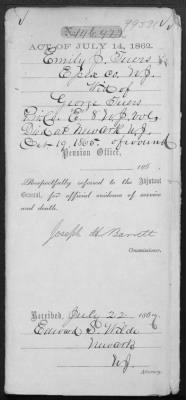 ACT OF JULY 14, 1862.
Emily J. Tuers
Essex co. N.J.
Wid of
George Tuers
Pvt. E. 8" N.J. Vols
Died at Newark N.J.
Oct 19. 1865. of wound
Pension Office,
186
Respectfully referred to the Adjutant
General, for official evidence of service
and death.
Joseph H Barrett
Commissioner.
Received, July 22 186
Edward S. Wilde
Newark
N.J.
Attorney.